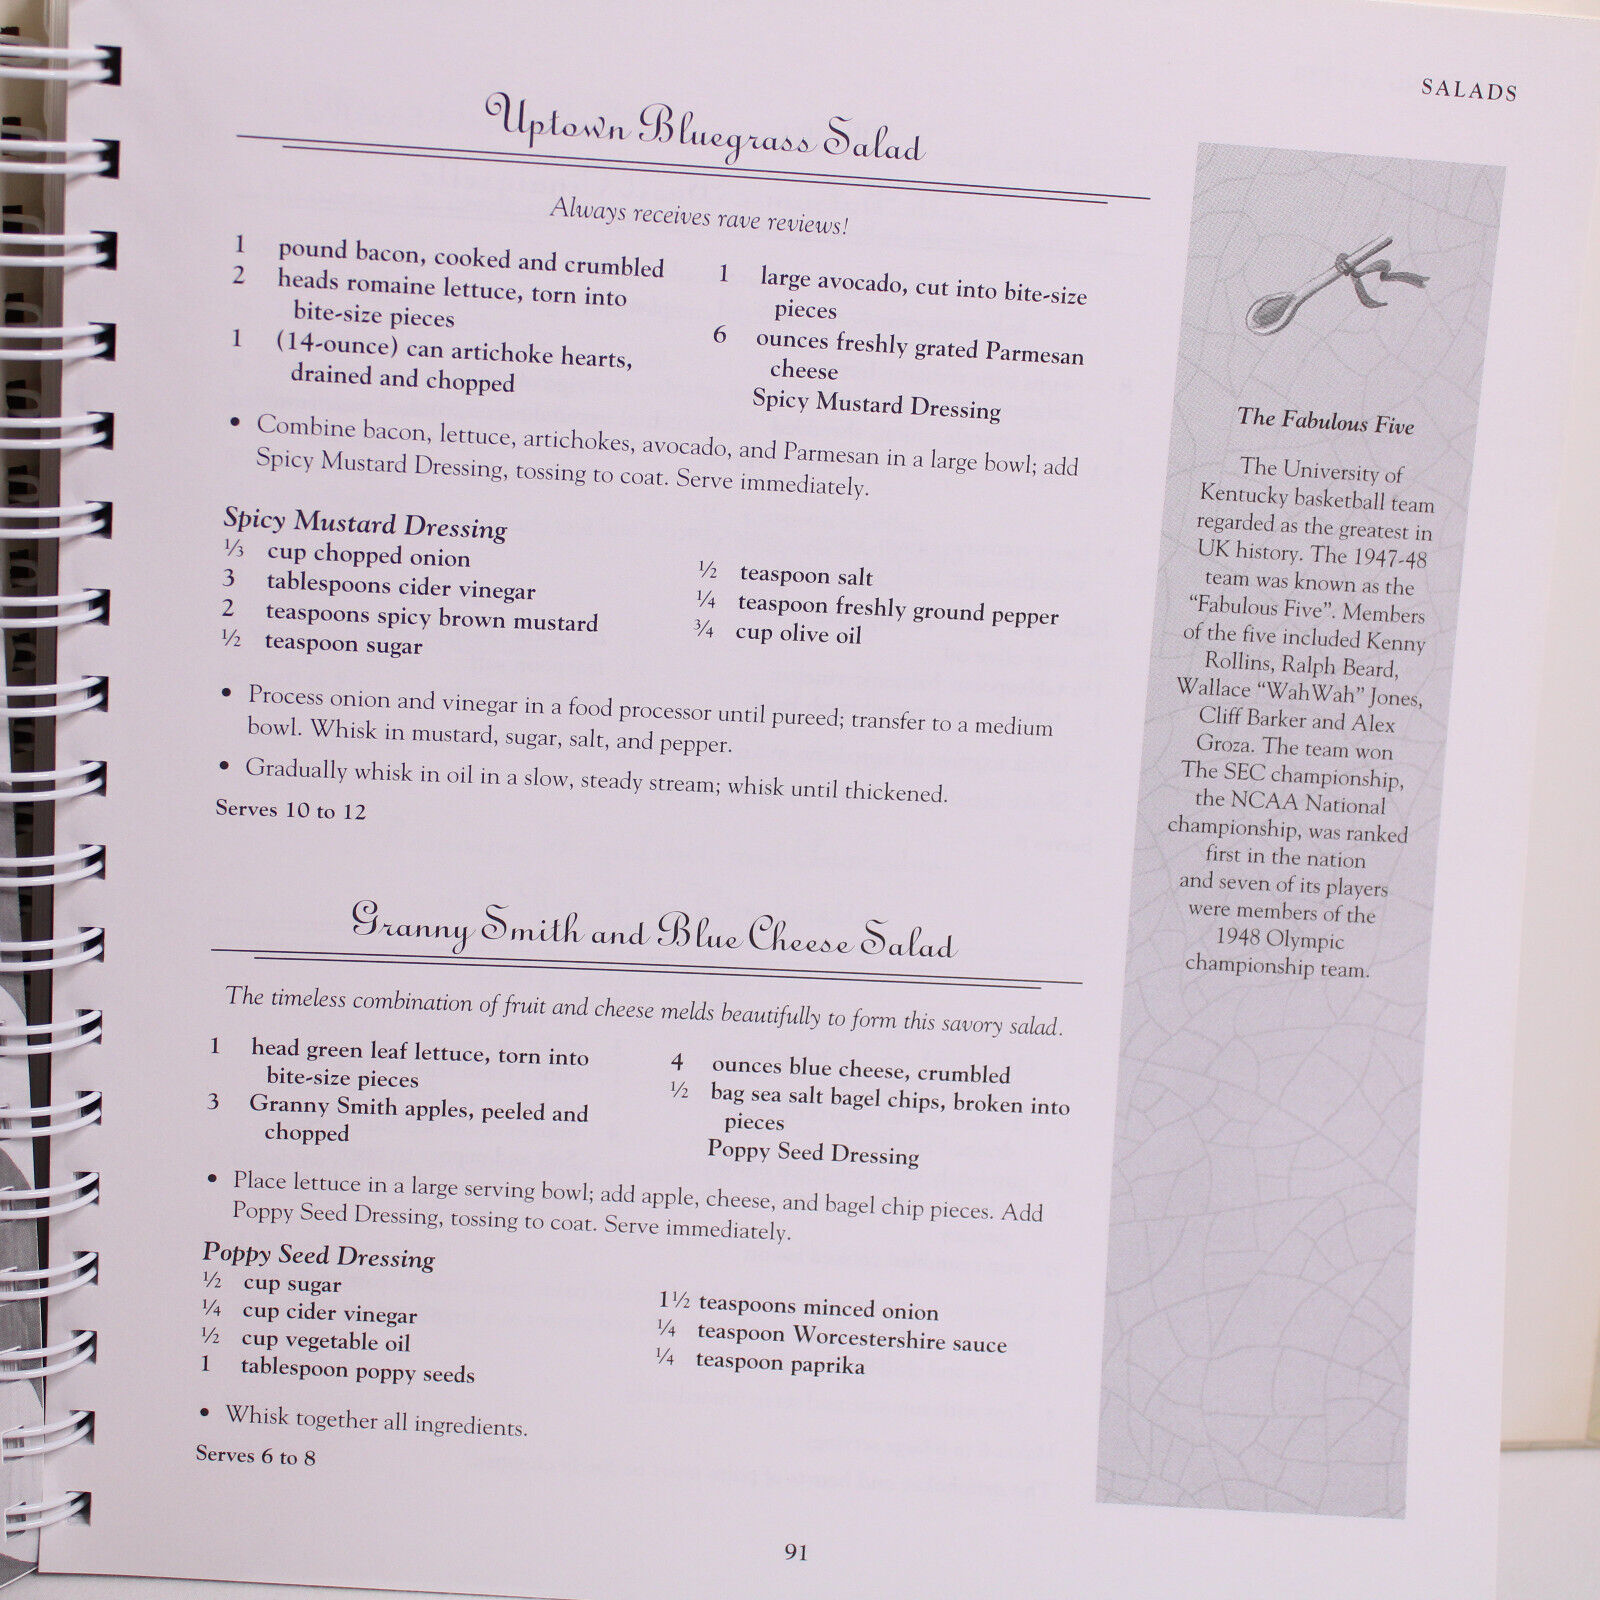 SALADS
Uptown Bluegrass Salad
Always receives rave reviews!
1 pound bacon, cooked and crumbled
2 heads romaine lettuce, torn into
bite-size pieces
1 (14-ounce) can artichoke hearts,
drained and chopped
1 large avocado, cut into bite-size
pieces
6 ounces freshly grated Parmesan
cheese
Spicy Mustard Dressing
• Combine bacon, lettuce, artichokes, avocado, and Parmesan in a large bowl; add
Spicy Mustard Dressing, tossing to coat. Serve immediately.
Spicy Mustard Dressing
⅓ cup chopped onion
3 tablespoons cider vinegar
2 teaspoons spicy brown mustard
½ teaspoon sugar
½ teaspoon salt
¼ teaspoon freshly ground pepper
¾ cup olive oil
• Process onion and vinegar in a food processor until pureed; transfer to a medium
bowl. Whisk in mustard, sugar, salt, and pepper.
• Gradually whisk in oil in a slow, steady stream; whisk until thickened.
Serves 10 to 12
Granny Smith and Blue Cheese Salad
The timeless combination of fruit and cheese melds beautifully to form this savory salad.
1 head green leaf lettuce, torn into
bite-size pieces
3 Granny Smith apples, peeled and
chopped
4 ounces blue cheese, crumbled
½ bag sea salt bagel chips, broken into
pieces
Poppy Seed Dressing
• Place lettuce in a large serving bowl; add apple, cheese, and bagel chip pieces. Add
Poppy Seed Dressing, tossing to coat. Serve immediately.
Poppy Seed Dressing
½ cup sugar
¼ cup cider vinegar
½ cup vegetable oil
1 tablespoon poppy seeds
1½ teaspoons minced onion
¼ teaspoon Worcestershire sauce
¼ teaspoon paprika
• Whisk together all ingredients.
Serves 6 to 8
The Fabulous Five
The University of
Kentucky basketball team
regarded as the greatest in
UK history. The 1947-48
team was known as the
“Fabulous Five”. Members
of the five included Kenny
Rollins, Ralph Beard,
Wallace “WahWah” Jones,
Cliff Barker and Alex
Groza. The team won
The SEC championship,
the NCAA National
championship, was ranked
first in the nation
and seven of its players
were members of the
1948 Olympic
championship team.
91